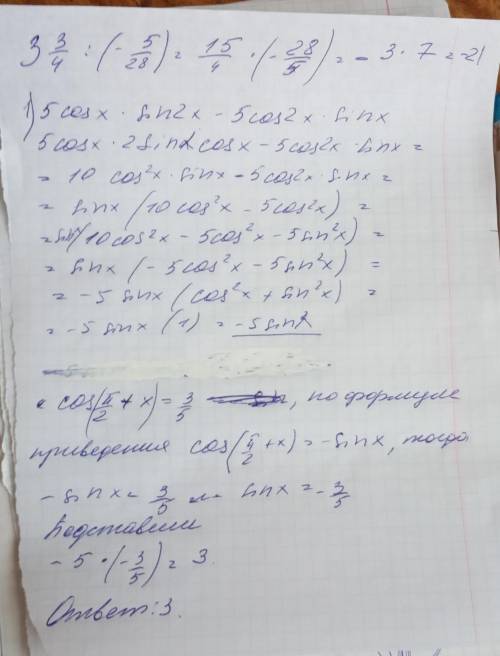 3 3/4 : (- 5/28) = 15/4 · (- 28/5) = - 3 · 7 = -21
1) 5 cosx · sin2x - 5 cos2x · sinx
5 cosx · 2 sinx cosx - 5 cos2x · sinx =
= 10 cos²x · sinx - 5 cos2x · sinx =
= sinx (10 cos²x - 5 cos2x) =
= sinx (10 cos²x - 5 cos²x - 5 sin²x) =
= sinx (- 5 cos²x - 5 sin²x) =
= -5 sinx (cos²x + sin²x) =
= -5 sinx (1) = -5 sinx
cos(π/2 + x) = 3/5, по формуле
приведения cos(π/2 + x) = - sinx, тогда
- sinx = 3/5 sinx = - 3/5
Подставили
- 5 · (- 3/5) = 3.
Ответ: 3.